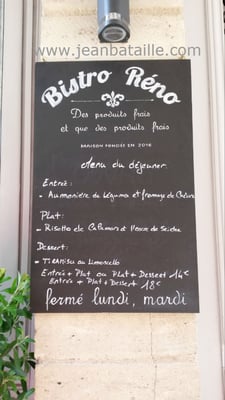 www.jeanbataille.com
Bistro Réno
Des produits frais
et que des produits frais
MAISON FONDÉE EN 2016
Menu du déjeuner
Entrée:
- Aumonière de légumes et fromage de Chèvre
Plat:
- Risotto de Calamars et Encre de Seiche
Dessert:
- Tiramisu au Limoncello
Entrée + Plat ou Plat + Dessert 14€
Entrée + Plat + Dessert 18€
fermé lundi, mardi